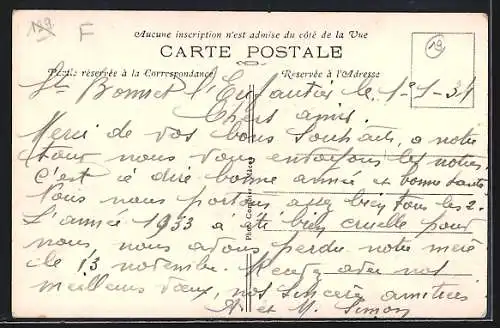 189
F
19
Aucune inscription n'est admise du côté de la Vue
CARTE POSTALE
Partie réservée à la Correspondance
Réservée à l'Adresse
St Bonnet l'Enfantier le 1-1-34
Chers amis.
Merci de vos bons souhaits, a notre
tour nous vous envoyons les notres.
C'est à dire bonne année et bonne santé
Nous nous portons assez bien tous les 2.
L'année 1933 a été bien cruelle pour
nous, nous avons perdu notre mère
le 13 novembre. avec nos
meilleurs vœux, nos sincères amitiés
A. et M. Simon